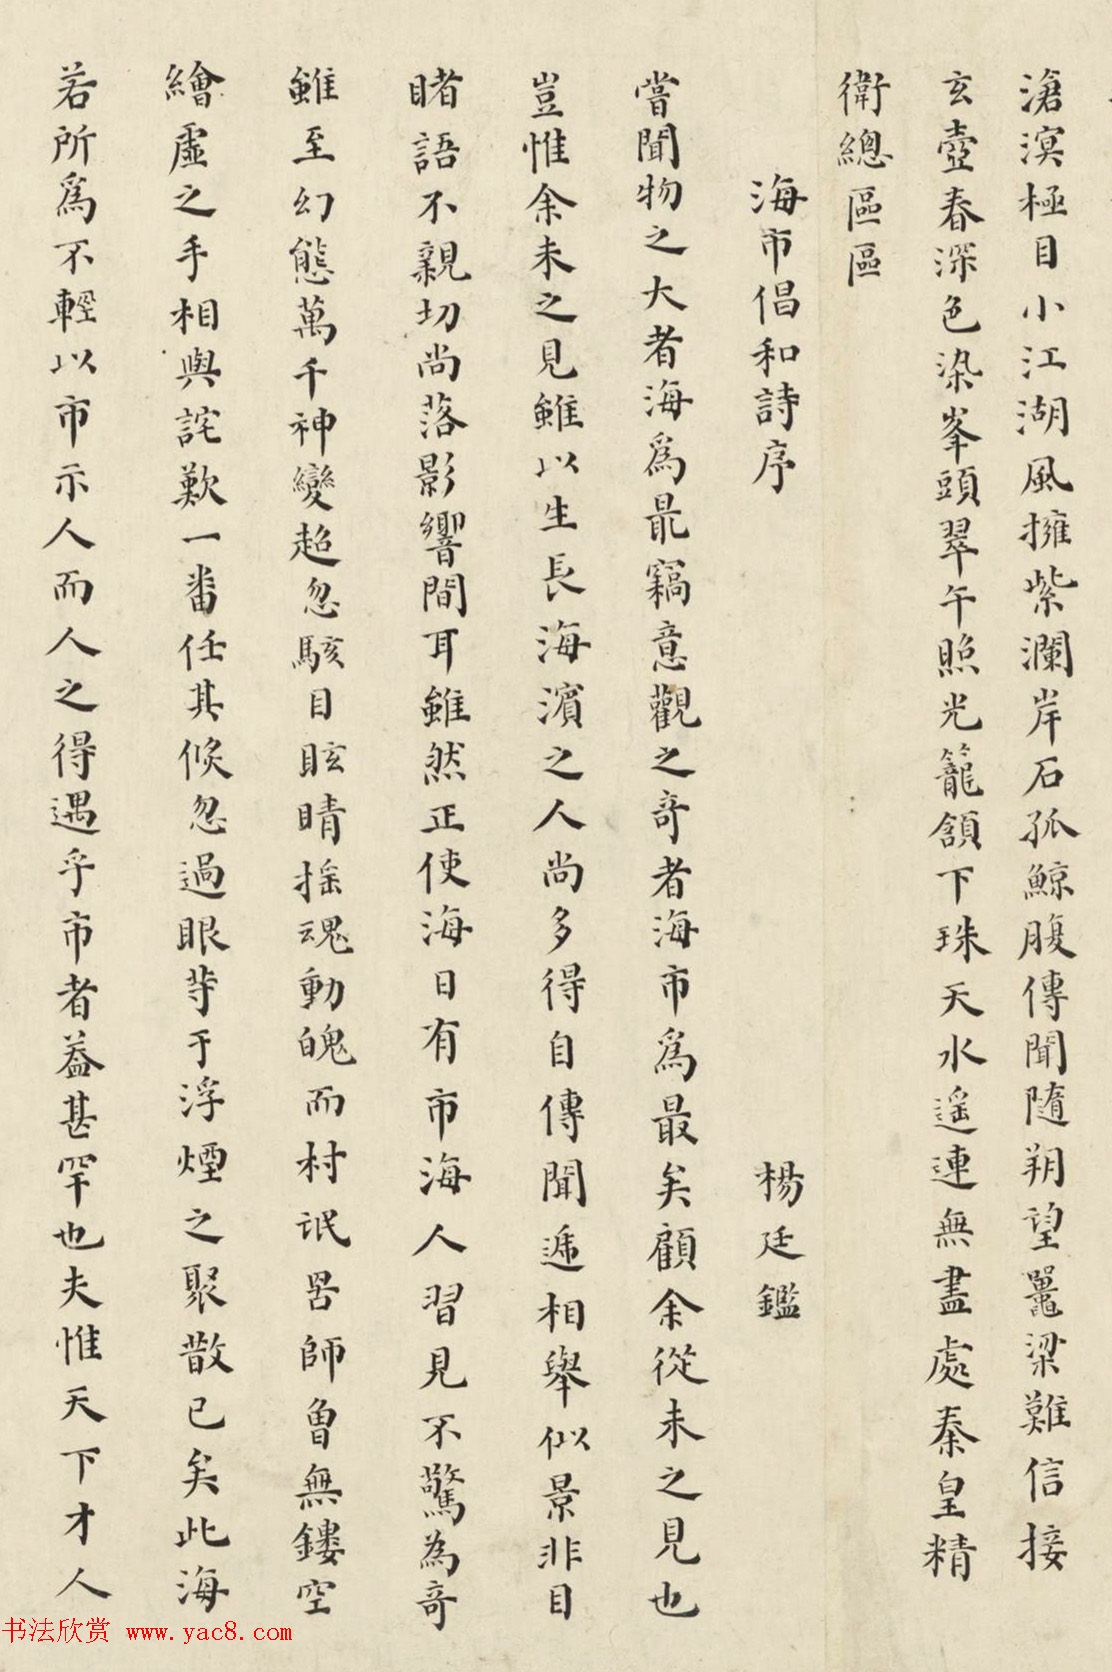 滄溟極目小江湖風擁紫瀾岸石孤鯨腹傳聞隨朔望鼉梁難信接
玄壺春深色染峯頭翠午照光籠頷下珠天水遥連無盡處秦皇精
衛總區區
海市倡和詩序 楊廷鑑
嘗聞物之大者海爲最竊意觀之奇者海市爲最矣顧余從未之見也
豈惟余未之見雖以生長海濱之人尚多得自傳聞遞相舉似景非目
睹語不親切尚落影響間耳雖然正使海日有市海人習見不驚為奇
雖至幻態萬千神變超忽駭目眩睛摇魂動魄而村氓罟師曾無鏤空
繪虛之手相與詫歎一番任其倐忽過眼等于浮煙之聚散已矣此海
若所爲不輕以市示人而人之得遇乎市者葢甚罕也夫惟天下才人
书法欣赏 www.yac8.com